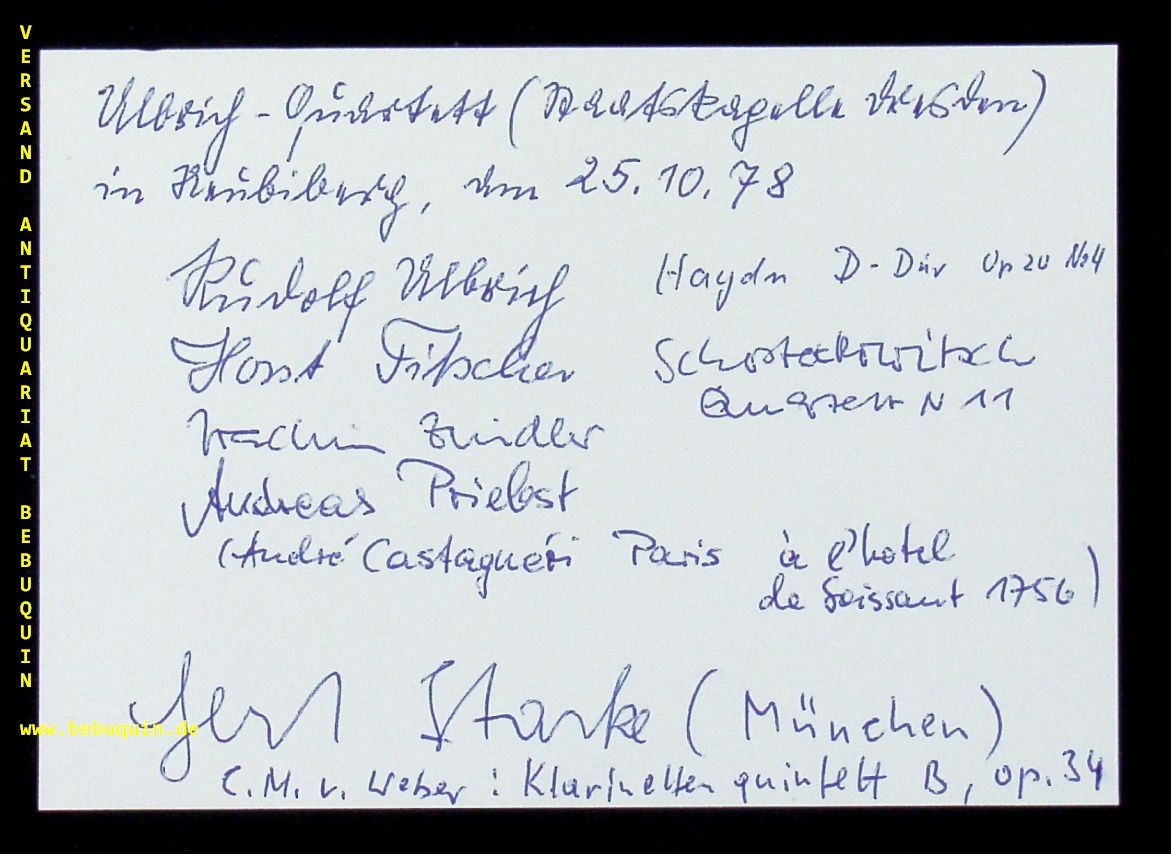 VERSAND ANTIQUARIAT BEBUQUIN
www.bebuquin.de
Ulbrich-Quartett (Staatskapelle Dresden)
in Neubiberg, am 25.10.78
Rudolf Ulbrich
Haydn D-Dur Op 20 No 4
Horst Titscher
Schostakowitsch
Quartett N 11
Joachim Zindler
Andreas Priebst
(André Castagnéri Paris à l'hotel
de Soissant 1756)
Gerd Starke (München)
C.M. v. Weber: Klarinettenquintett B, op. 34